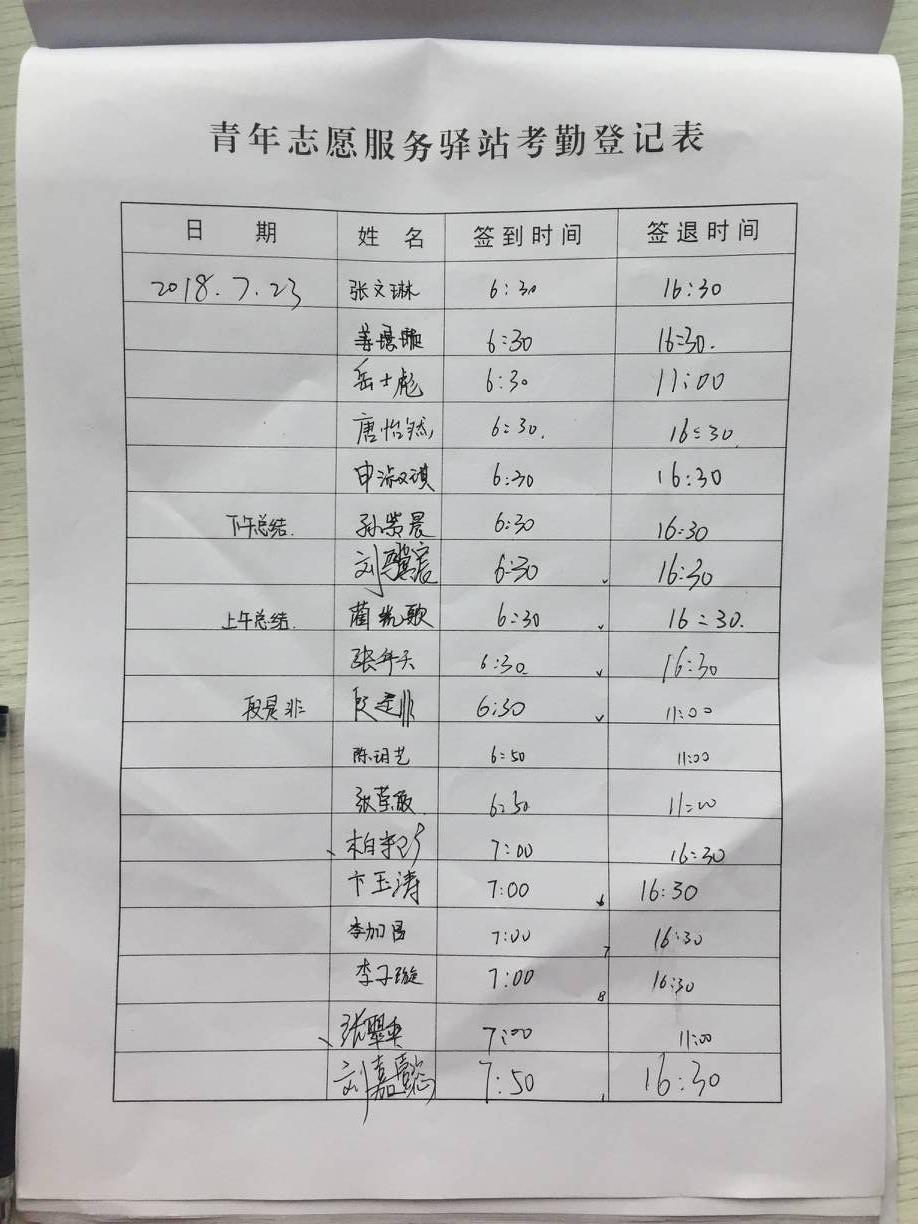 青年志愿服务驿站考勤登记表
日 期 姓 名 签到时间 签退时间
2018.7.23 张文琳 6:30 16:30
姜璟璇 6:30 16:30.
岳士彪 6:30 11:00
唐怡然 6:30. 16:30
申淑琪 6:30 16:30
下午总结. 孙崇晨 6:30 16:30
刘骐宸 6:30 16:30
上午总结. 蔺光歌 6:30 16:30.
张午天 6:30 16:30
段是非 段是非 6:30 11:00
陈玥艺 6:50 11:00
张 6:50 11:00
柏 7:00 16:30
卞玉涛 7:00 16:30
李加昌 7:00 7 16:30
李子璇 7:00 8 16:30
张翼 7:00 11:00
刘嘉懿 7:50 16:30